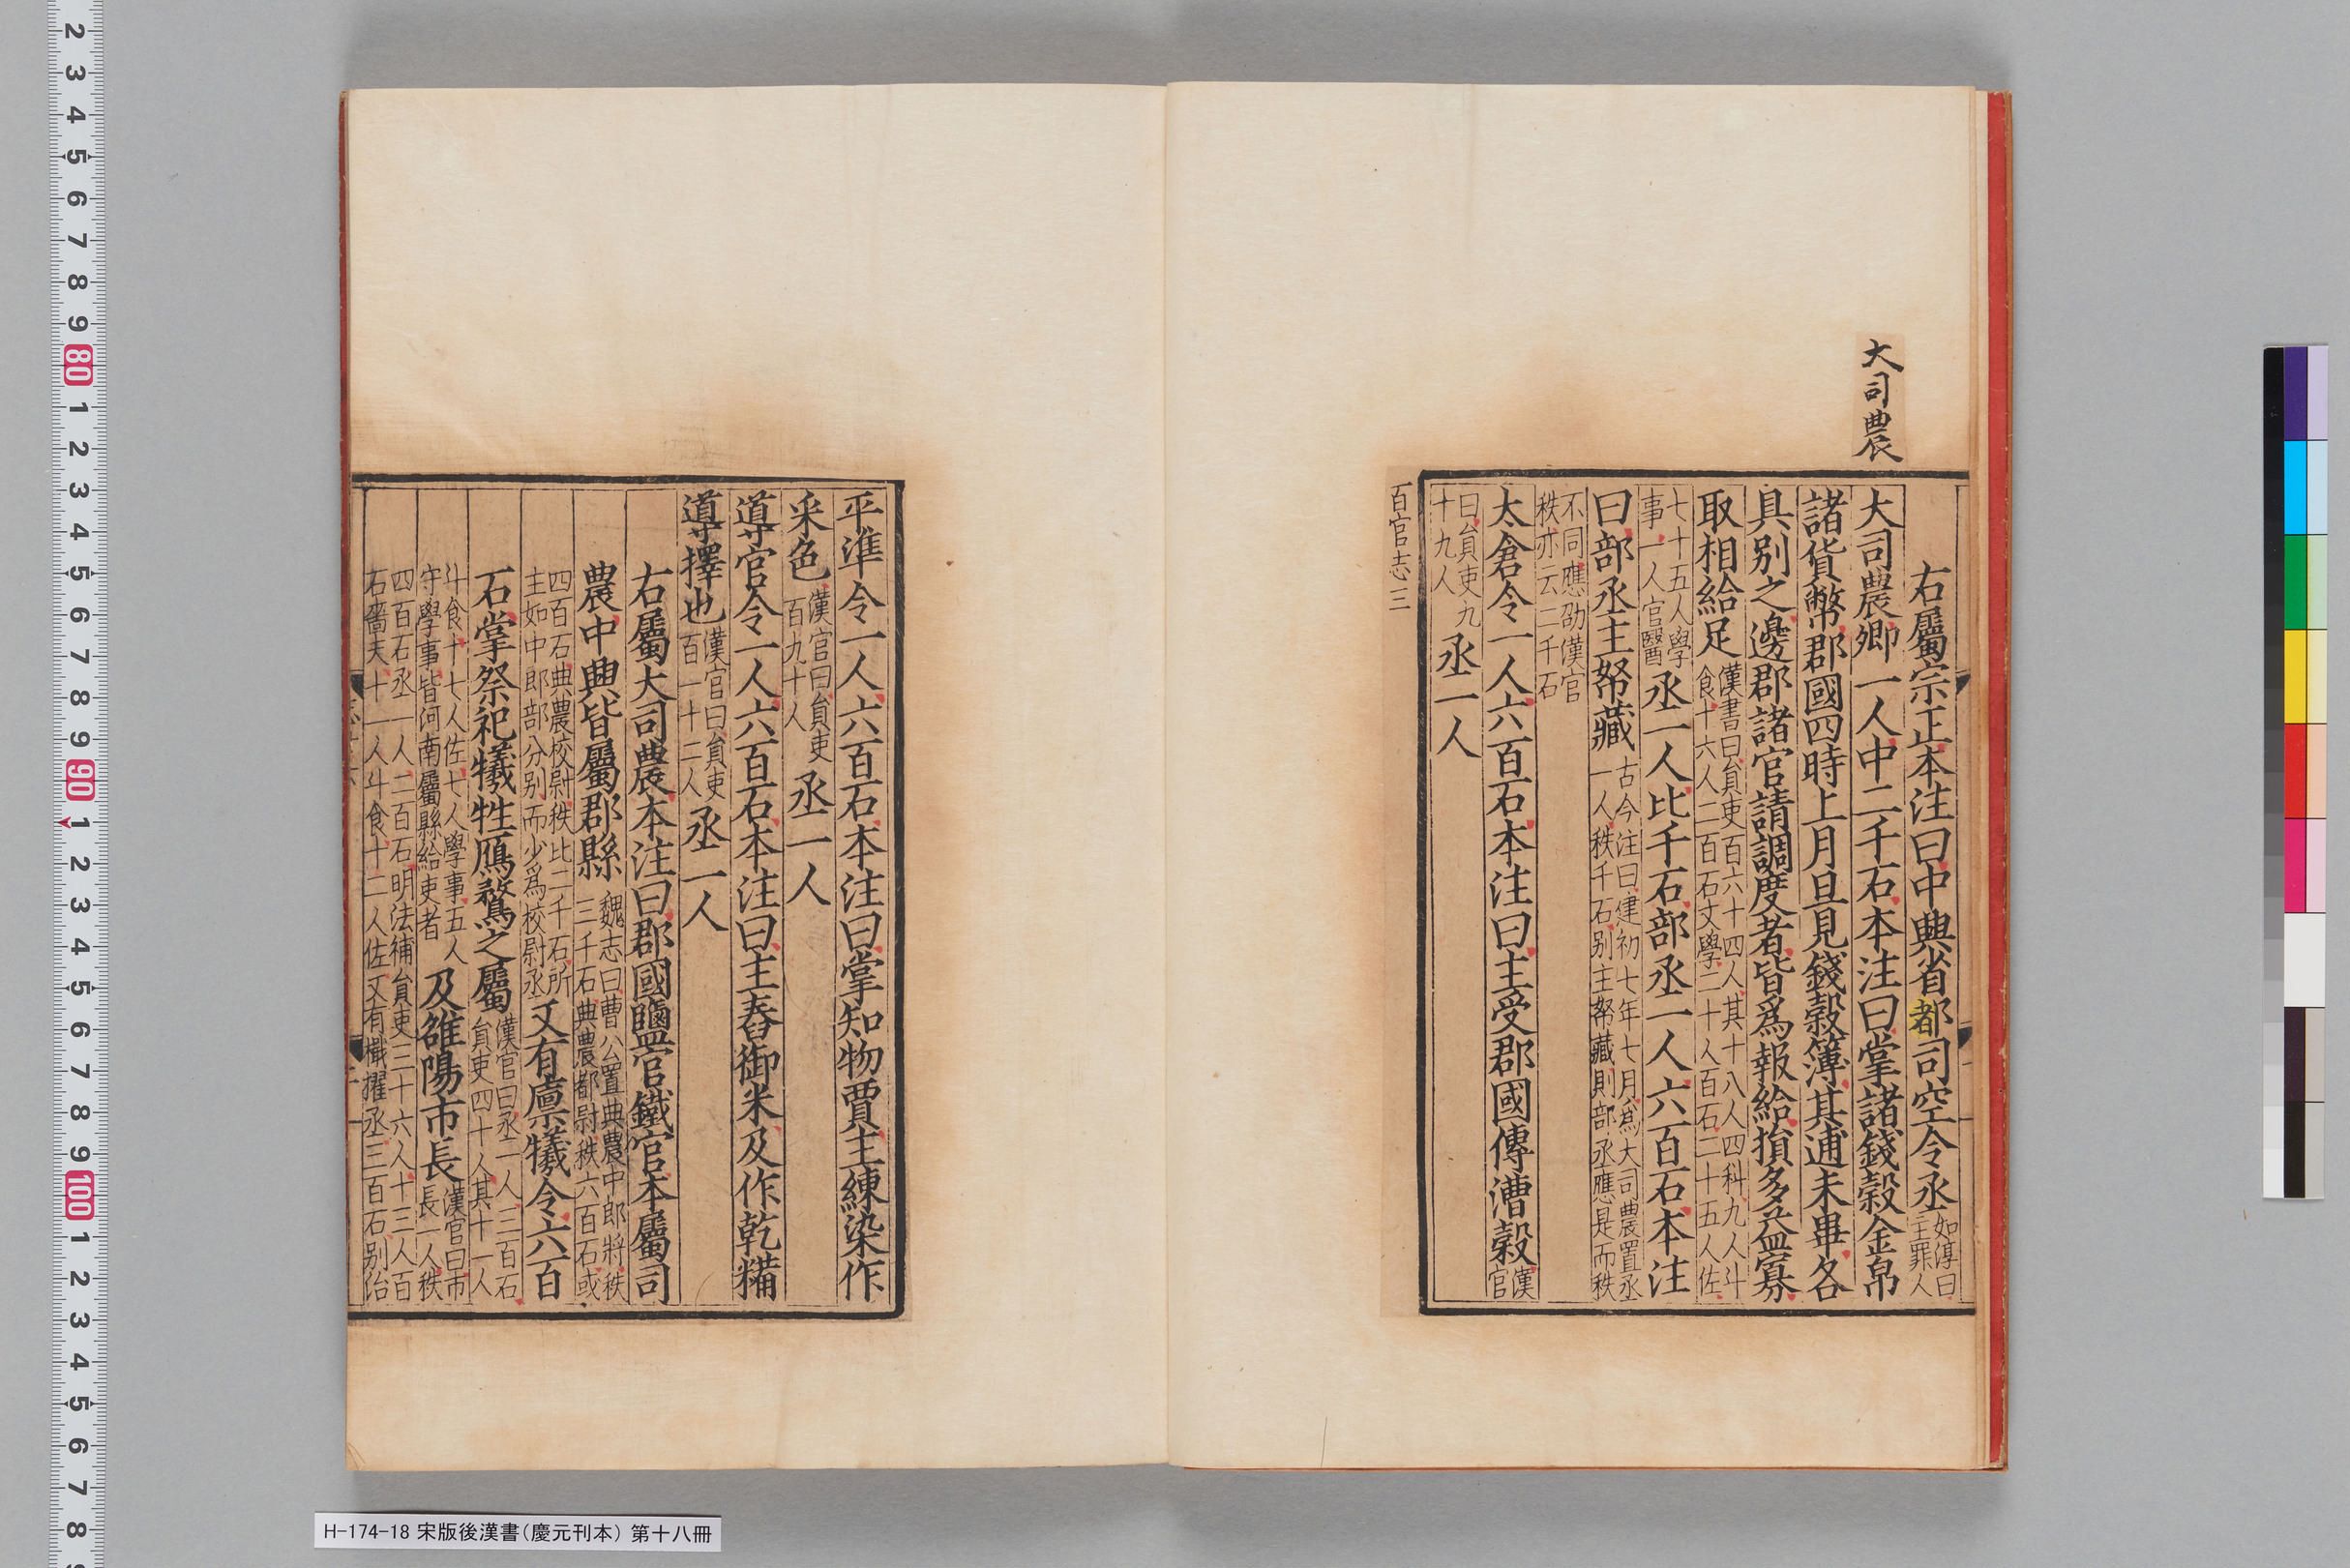 大司農
右屬宗正本注曰中興省都司空令丞如淳曰主罪人
大司農卿一人中二千石本注曰掌諸錢穀金帛
諸貨幣郡國四時上月旦見錢穀簿其逋未畢各
具别之邊郡諸官請調度者皆爲報給損多益寡
取相給足漢書曰貟吏百六十四人其十八人四科九人斗食十六人二百石文學二十人百石二十五人佐
七十五人學事一人官醫丞一人比千石部丞一人六百石本注
曰部丞主帑藏古今注曰建初七年七月爲大司農置丞一人秩千石别主帑藏則部丞應是而秩
不同應劭漢官秩亦云二千石
太倉令一人六百石本注曰主受郡國傳漕穀漢官
曰貟吏九十九人丞一人
百官志三
平準令一人六百石本注曰掌知物賈主練染作
采色漢官曰貟吏百九十人丞一人
導官令一人六百石本注曰主舂御米及作乾糒
導擇也漢官曰貟吏百一十二人丞一人
右屬大司農本注曰郡國鹽官鐵官本屬司
農中興皆屬郡縣魏志曰曹公置典農中郎將秩二千石典農都尉秩六百石或
四百石典農校尉秩比二千石所主如中郎部分别而少爲校尉丞又有廩犧令六百
石掌祭祀犧牲鴈鶩之屬漢官曰丞一人三百石貟吏四十人其十一人
斗食十七人佐七人學事五人守學事皆河南屬縣給吏者及雒陽市長漢官曰市長一人秩
四百石丞一人二百石明法補貟吏三十六人十三人百石嗇夫十一人斗食十二人佐又有檝擢丞三百石别治
H-174-18 宋版後漢書（慶元刊本） 第十八冊